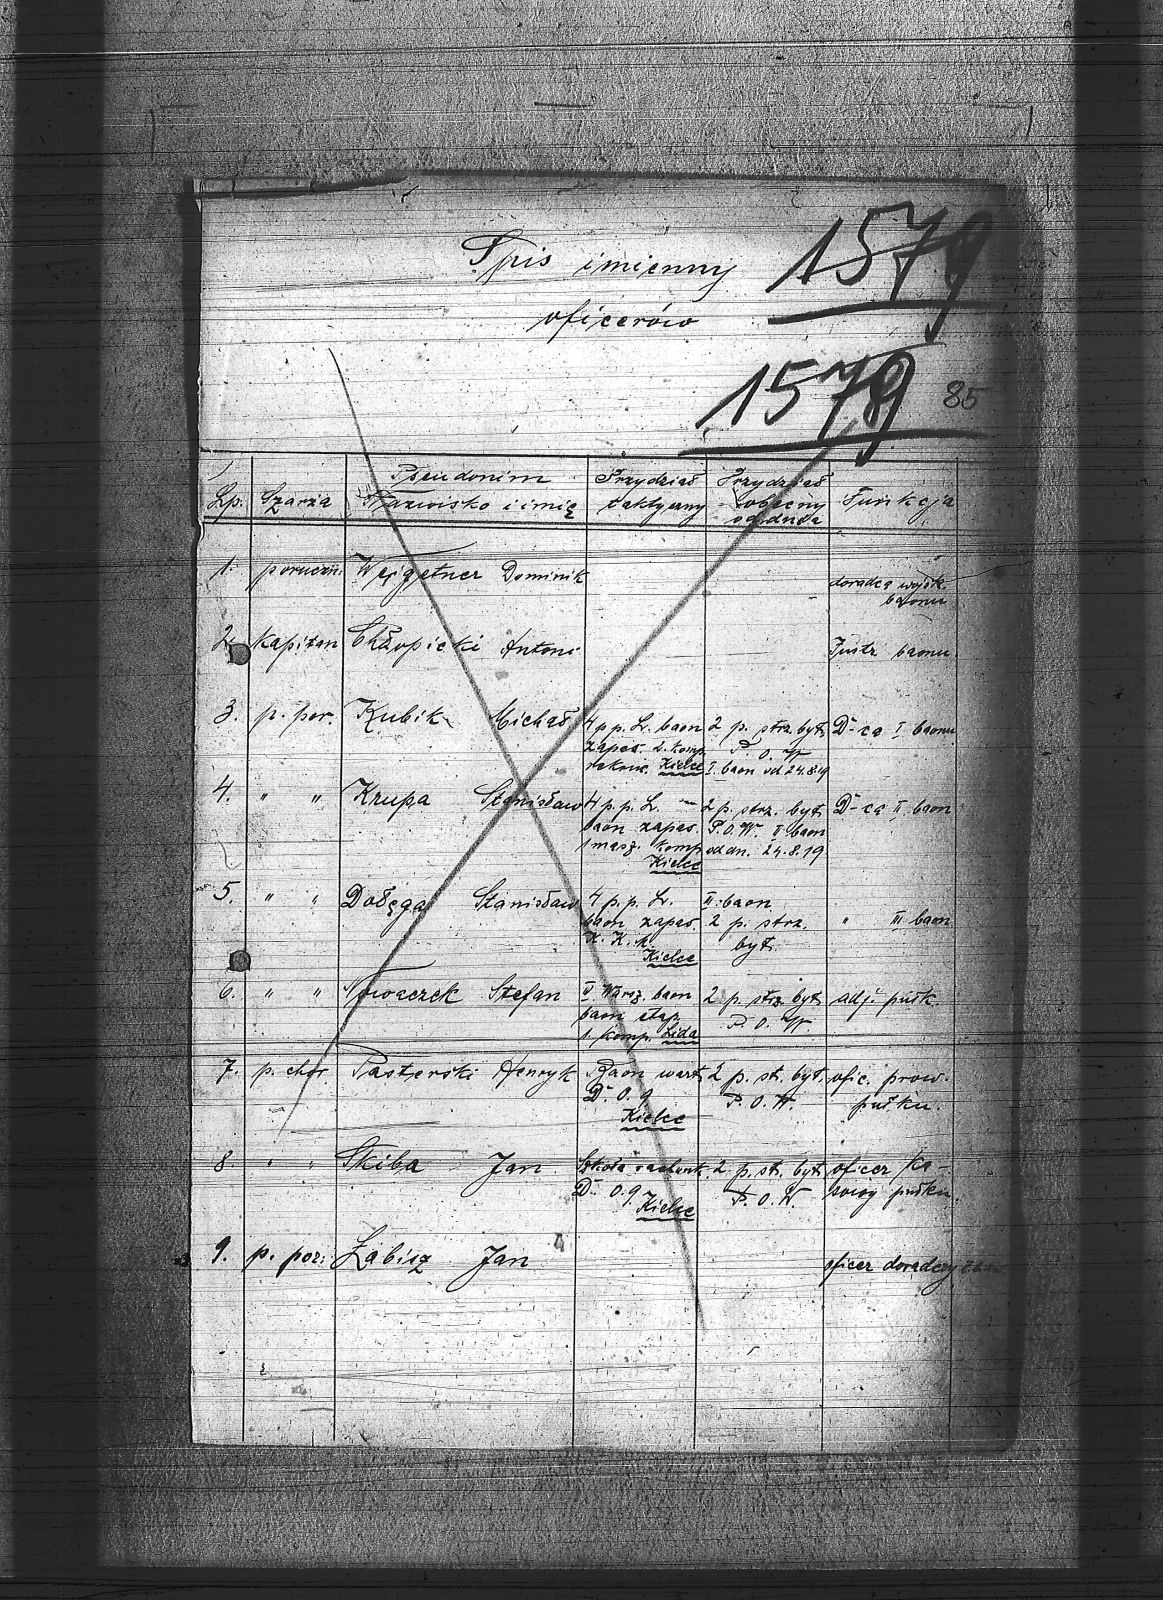 Spis imienny
oficerów
1579
1579
85
Lp. Szarża Pseudonim Nazwisko i imię Przydział taktyczny Przydział obecny od dnia Funkcja
1. poruczn. Wejgetner Dominik doradca wojsk. baonu
2. kapitan Chłopicki Antoni Instr. baonu.
3. p. por. Kubik Michał 4 p p. L. baon 2 p. strz. byt. D-ca I baonu
zapas. 2. komp. P. O. W.
Kielce I. baon od 24.8.19
4. " " Krupa Stanisław 4 p. p. L. — 2 p. strz. byt. D-ca II baon
baon zapas. P.O.W. II baon
1 masz. komp. od dn. 24.8.19
Kielce
5. " " Dołęga Stanisław 4 p. p. L. II baon
baon zapas. 2 p. strz. " III baon
K. K. M. byt.
Kielce
6. " " Nowaczek Stefan II Warsz. baon 2 p. strz. byt. adj. pułk.
baon etap. P. O. W.
1. komp. Lida
7. p. chor. Pasterski Henryk Baon wart. 2 p. st. byt. ofic. prow.
D. O. g P. O. W. pułku.
Kielce
8. " " Skiba Jan Szkoła rachunk. 2 p. st. byt. oficer ka-
D. O. g P. O. W. sowy pułku.
Kielce
9. p. por. Łabisz Jan oficer doradczy